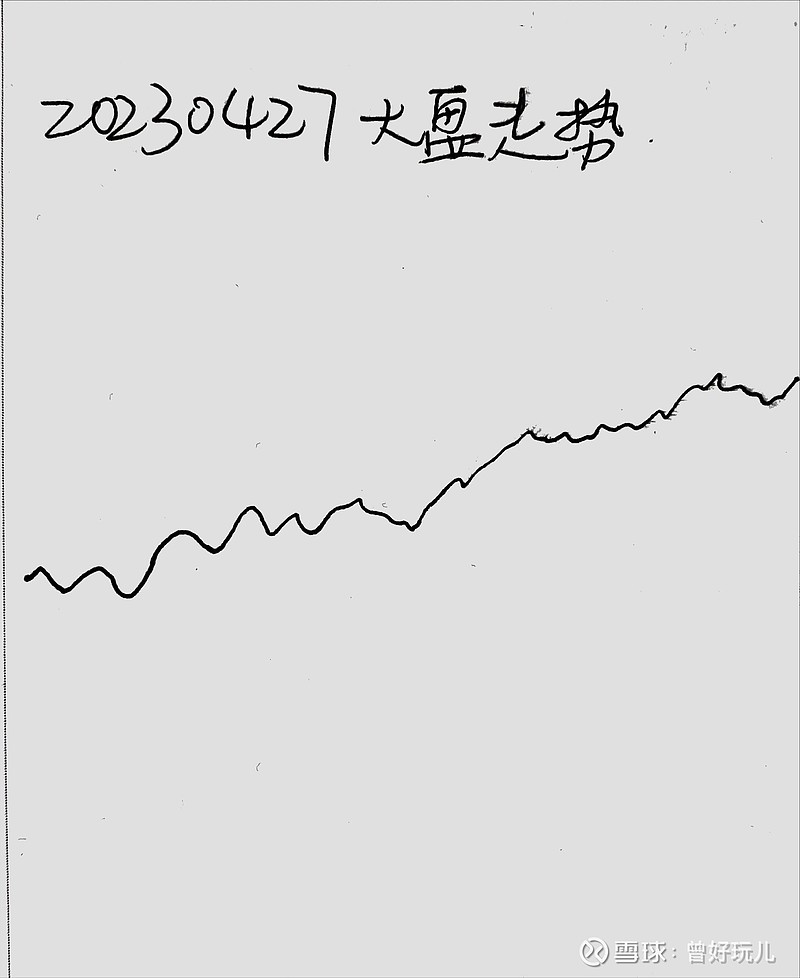 20230427大盘走势.
雪球：曾好玩儿